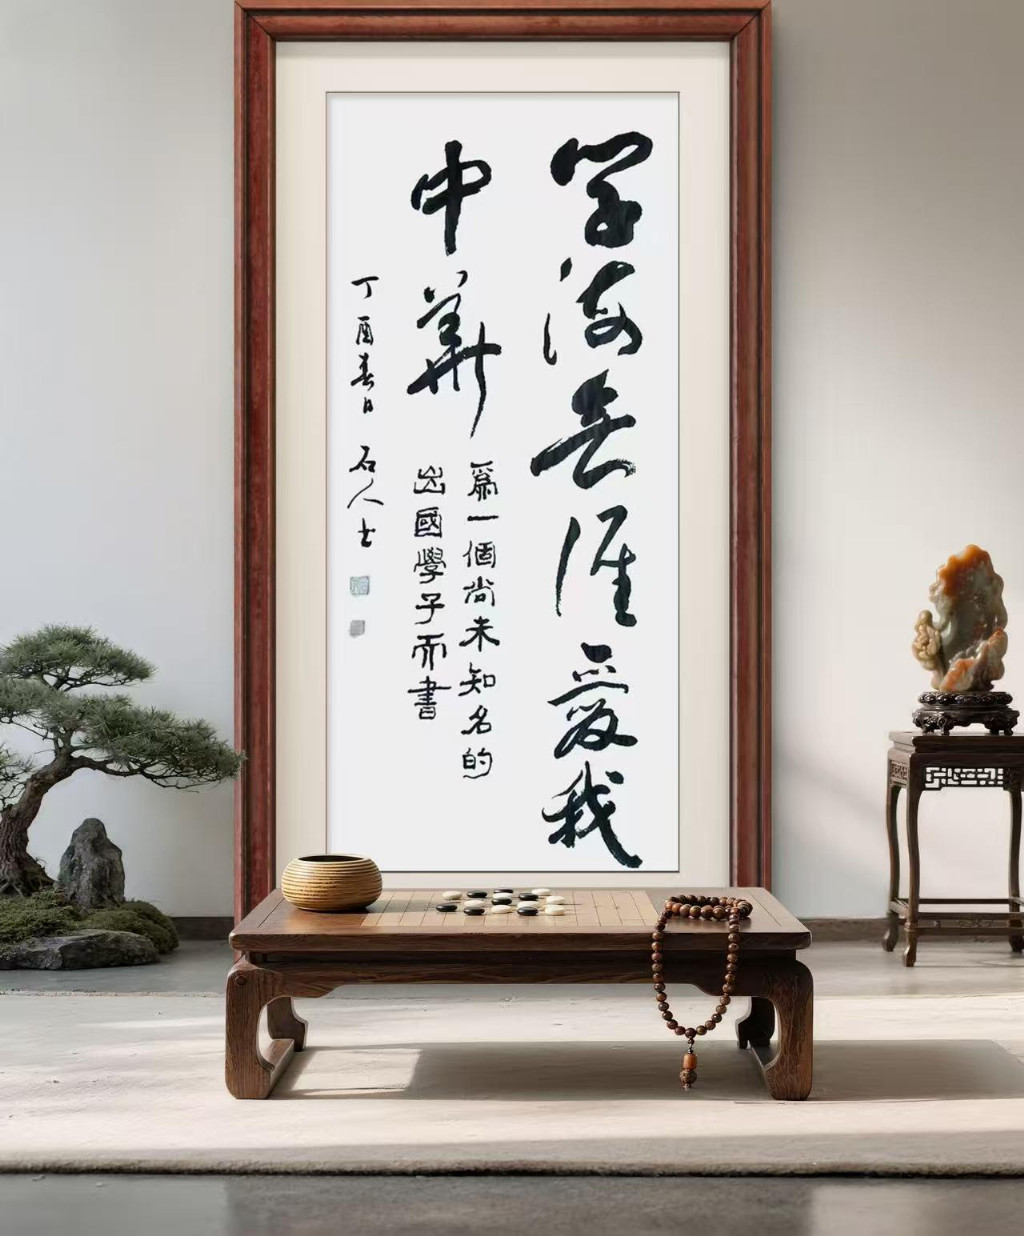 学海无涯爱我
中华
为一個尚未知名的
出國學子而書
丁酉春日 石人士